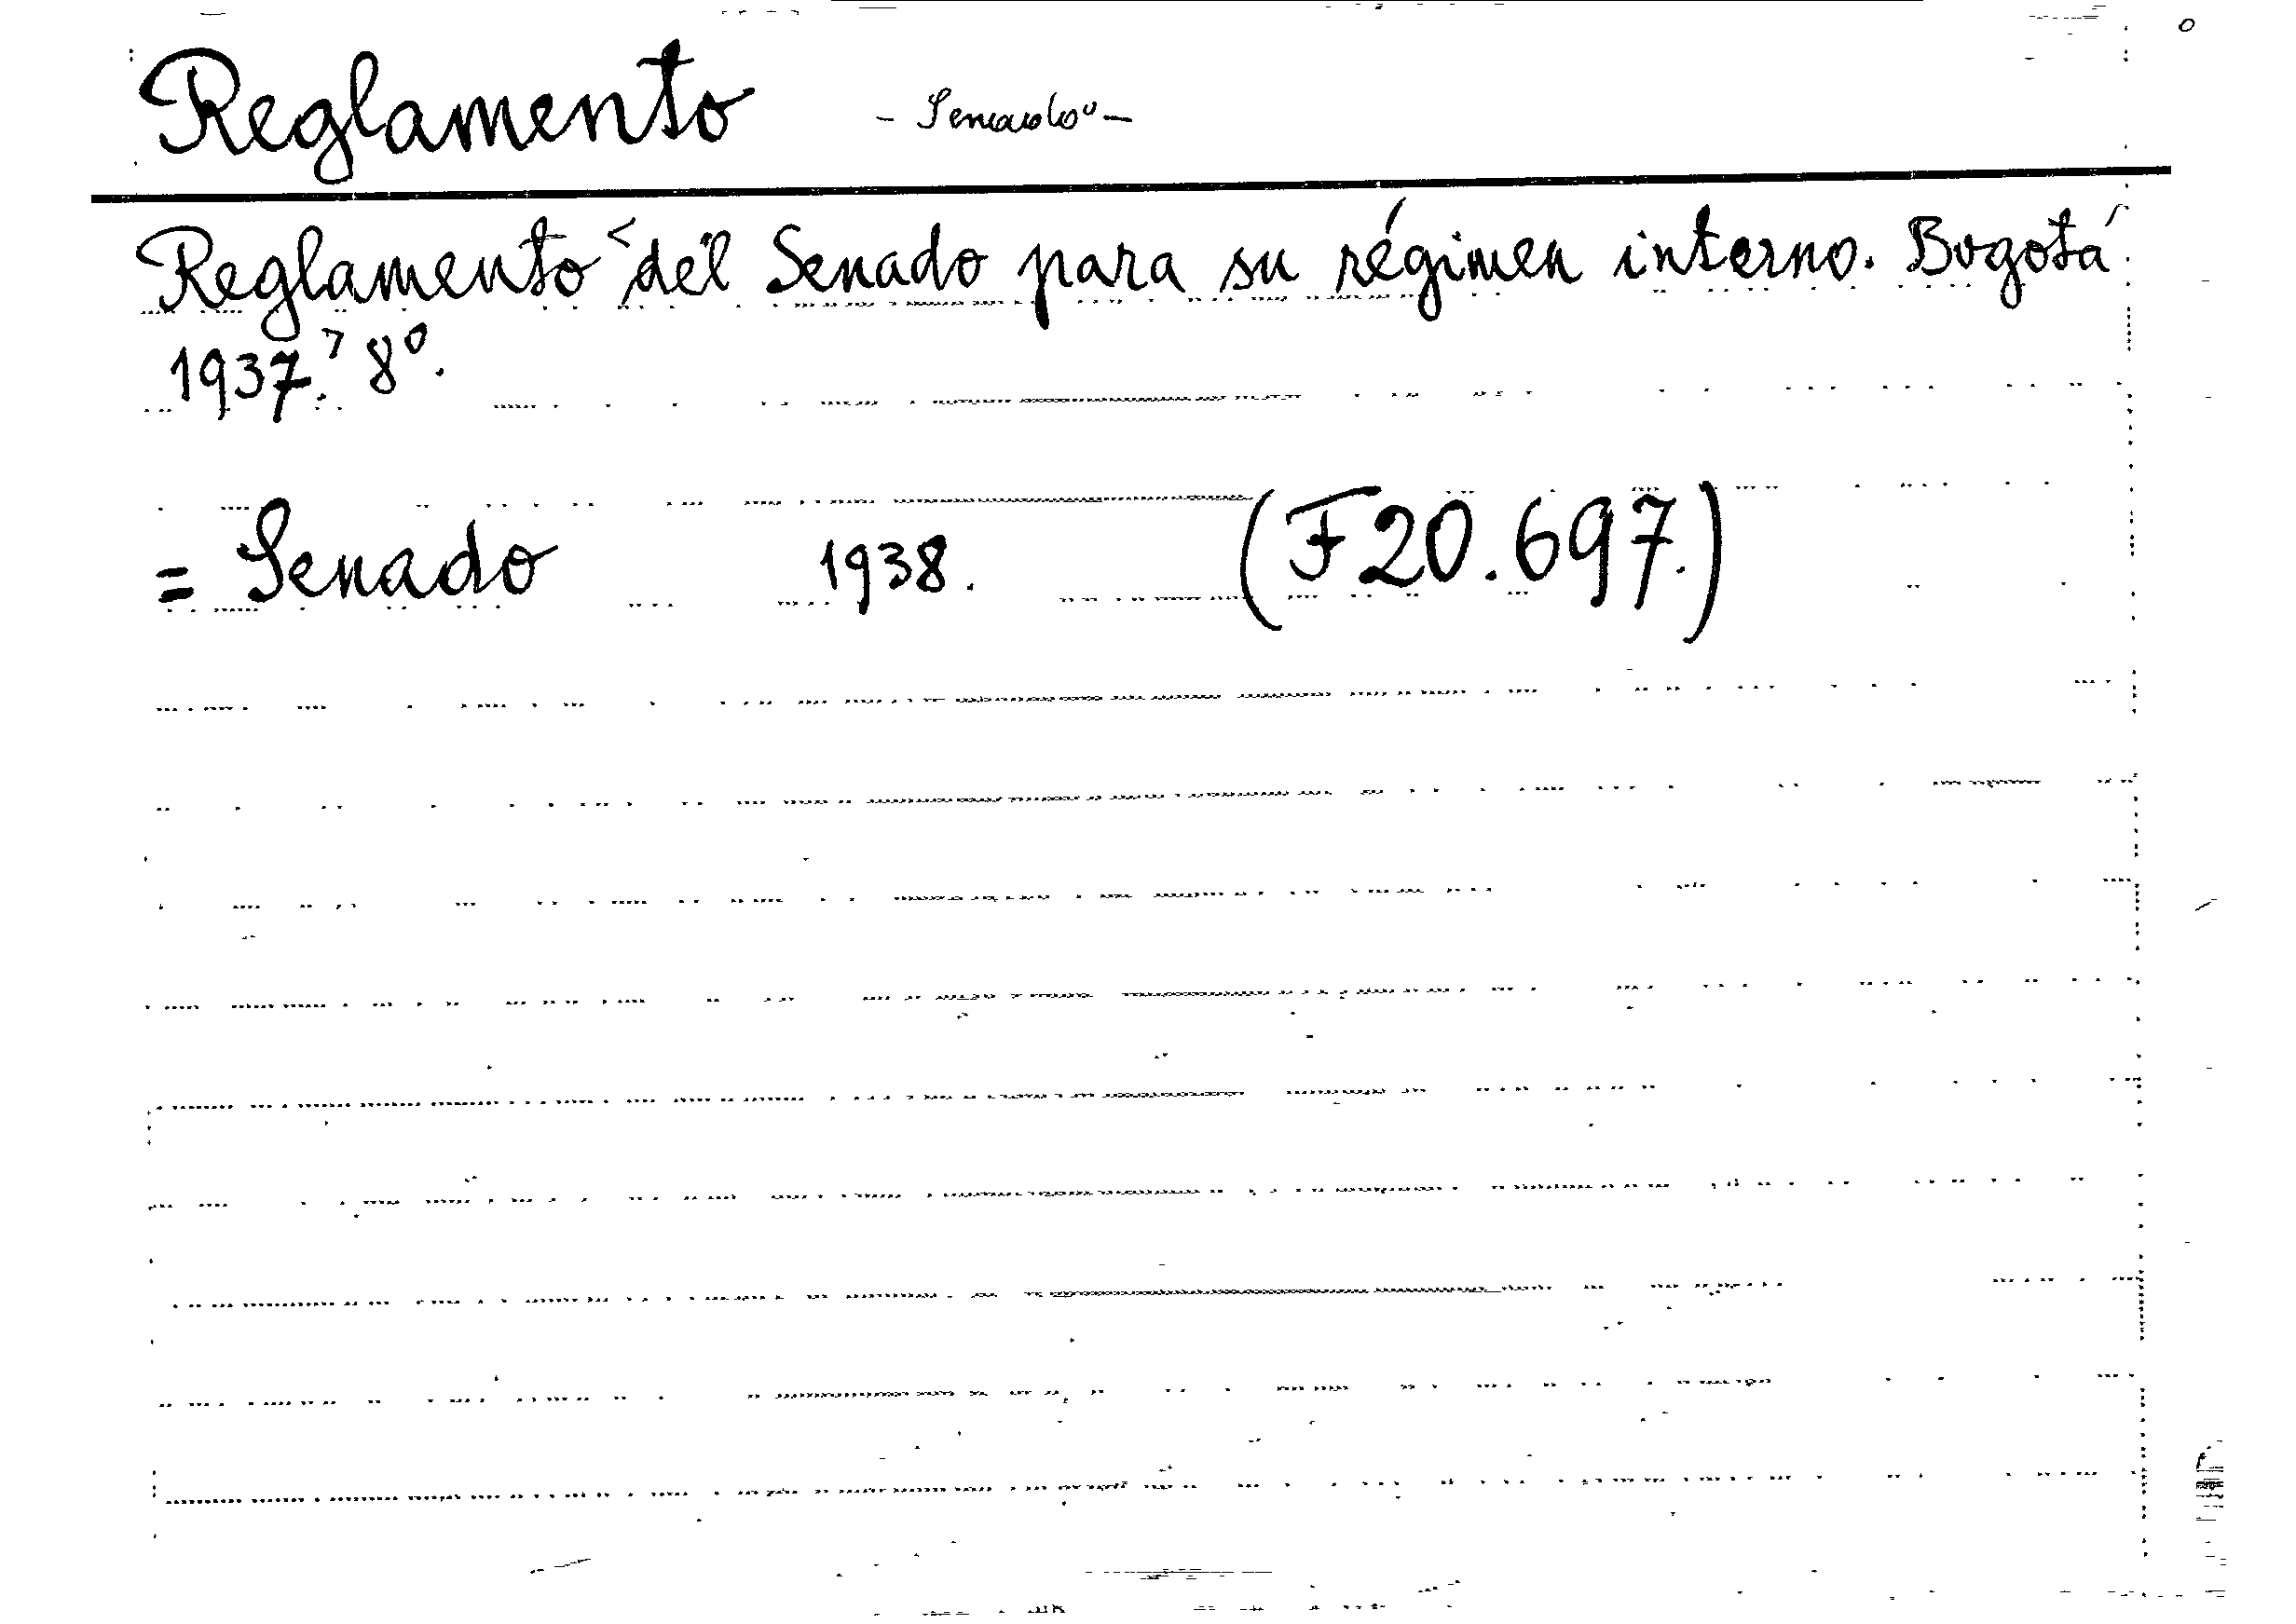 Reglamento - Senado -
Reglamento <del Senado para su régimen interno. Bogotá
1937.> 8º.
= Senado 1938. (F20.697.)